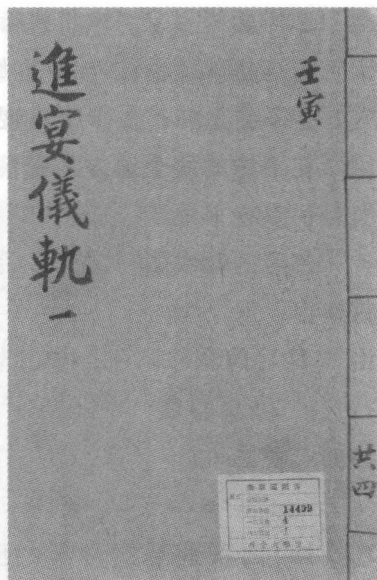 壬寅
進宴儀軌 一
共四
14499